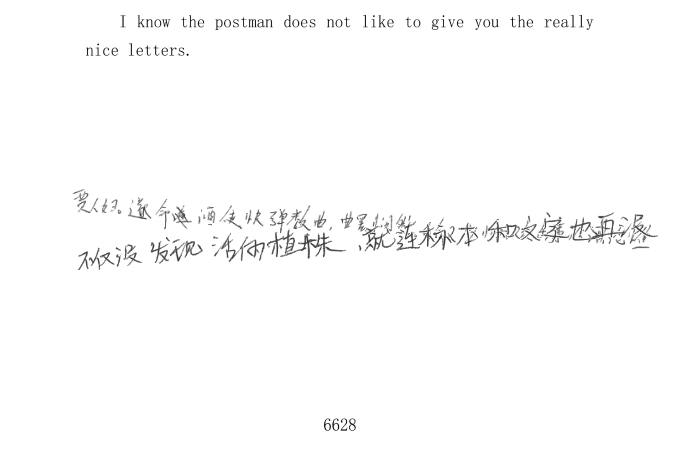 I know the postman does not like to give you the really
nice letters.
贾人妇。遂命酒使快弹数曲,曲罢悯然
不仅没发现活的植株,就连标本和文字也再没
6628